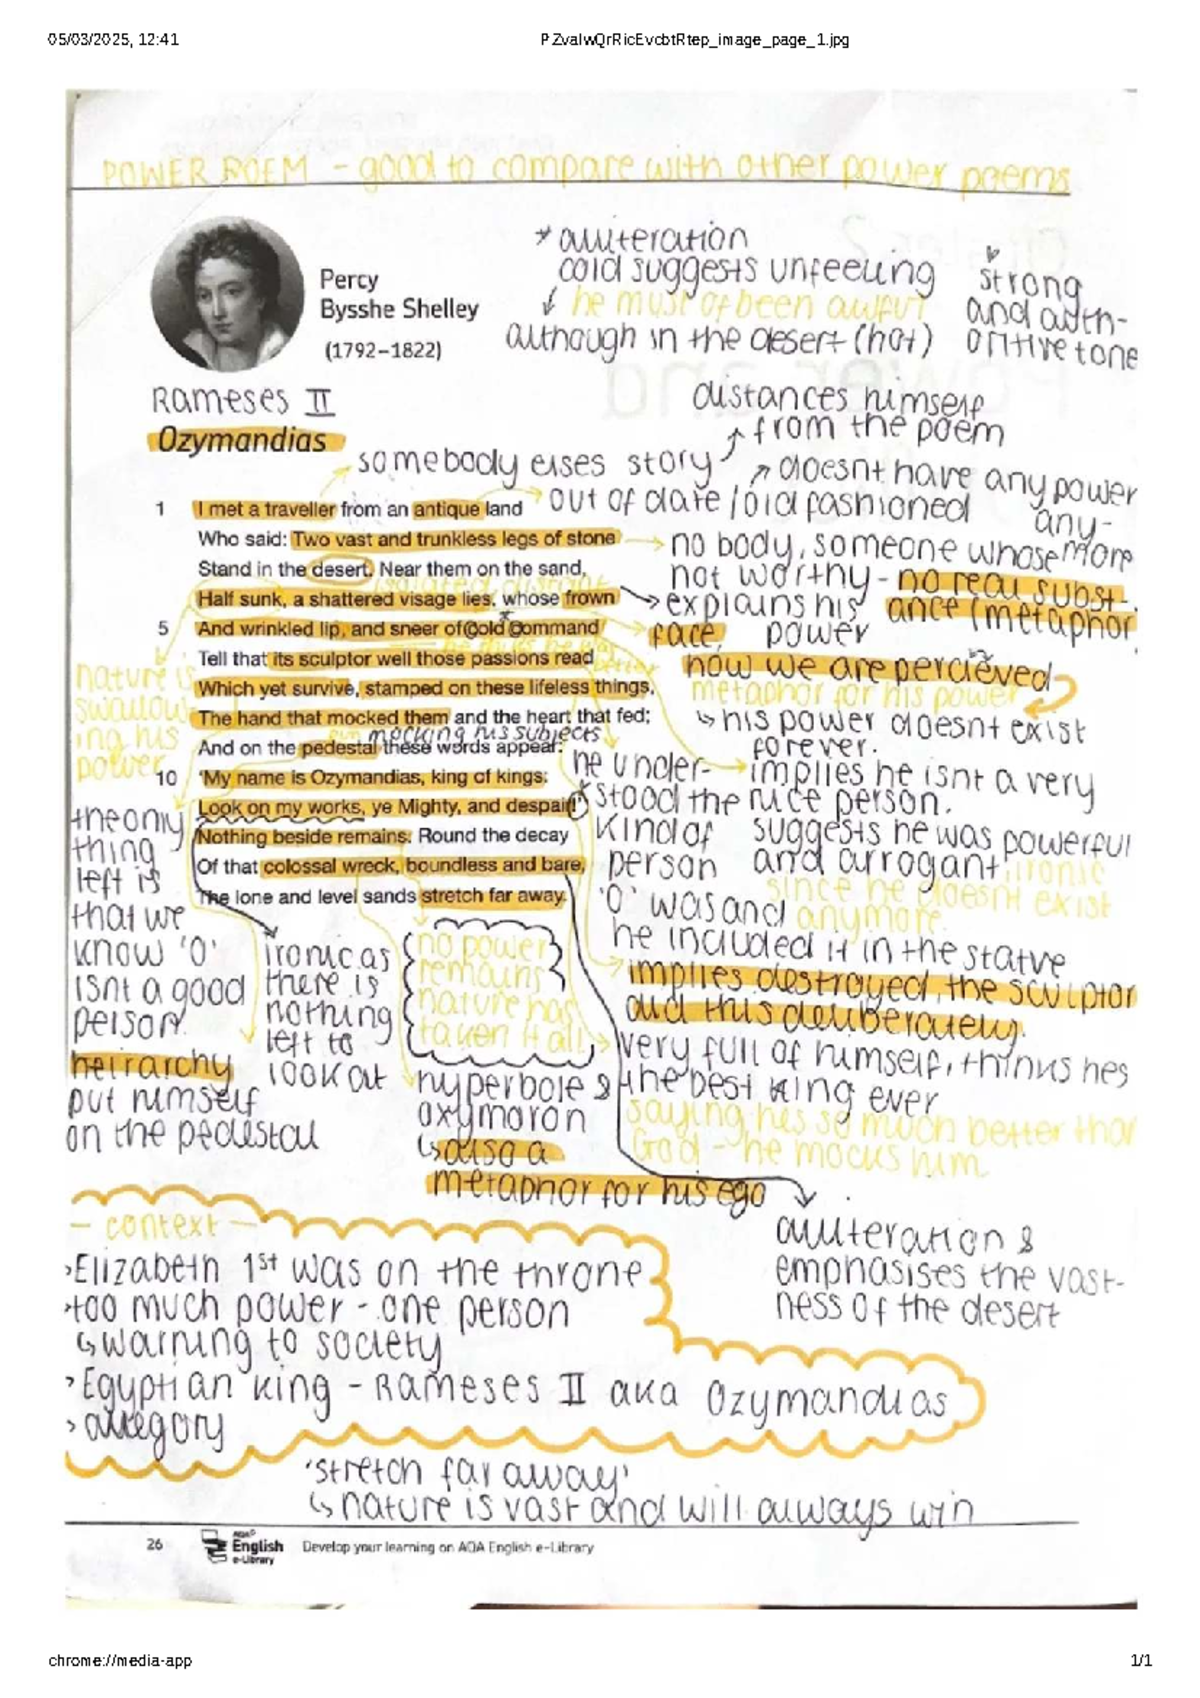 05/03/2025, 12:41
PZvaIwQrRicEvcbtRtep_image_page_1.jpg
POWER POEM - good to compare with other power poems
* alliteration
cold suggests unfeeling
he must of been awful
although in the desert (hot)
strong
and auth-
oritive tone
Percy
Bysshe Shelley
(1792–1822)
Rameses II
Ozymandias
distances himself
from the poem
somebody elses story
doesnt have any power
any-
more
out of date / old fashioned
1 I met a traveller from an antique land
Who said: Two vast and trunkless legs of stone
Stand in the desert. Near them on the sand,
isolated distant
Half sunk, a shattered visage lies, whose frown
5 And wrinkled lip, and sneer of cold command
Tell that its sculptor well those passions read
Which yet survive, stamped on these lifeless things,
The hand that mocked them and the heart that fed;
mocking his subjects
And on the pedestal these words appear:
10 'My name is Ozymandias, king of kings:
Look on my works, ye Mighty, and despair!'
Nothing beside remains. Round the decay
Of that colossal wreck, boundless and bare,
The lone and level sands stretch far away.
no body, someone whose
not worthy - no real subst-
ance (metaphor
explains his
power
face,
how we are percieved
metaphor for his power
his power doesnt exist
forever.
implies he isnt a very
nice person.
suggests he was powerful
and arrogant, ironic
since he doesnt exist
anymore.
he under-
stood the
kind of
person
'O' was and
he included it in the statue
implies destroyed, the sculptor
did this deliberately.
very full of himself, thinks hes
the best king ever
saying hes so much better than
God - he mocks him
nature is
swallow-
ing his
power
the only
thing
left is
that we
know 'O'
isnt a good
person.
heirarchy
put himself
on the pedestal
ironic as
there is
nothing
left to
look at
no power
remains
nature has
taken it all
hyperbole &
oxymoron
also a
metaphor for his ego
alliteration &
emphasises the vast-
ness of the desert
- context -
Elizabeth 1st was on the throne
too much power - one person
warning to society
Egyptian king - Rameses II aka Ozymandias
allegory
'stretch far away'
nature is vast and will always win
26
AQA
English
e-Library
Develop your learning on AQA English e-Library
chrome://media-app
1/1